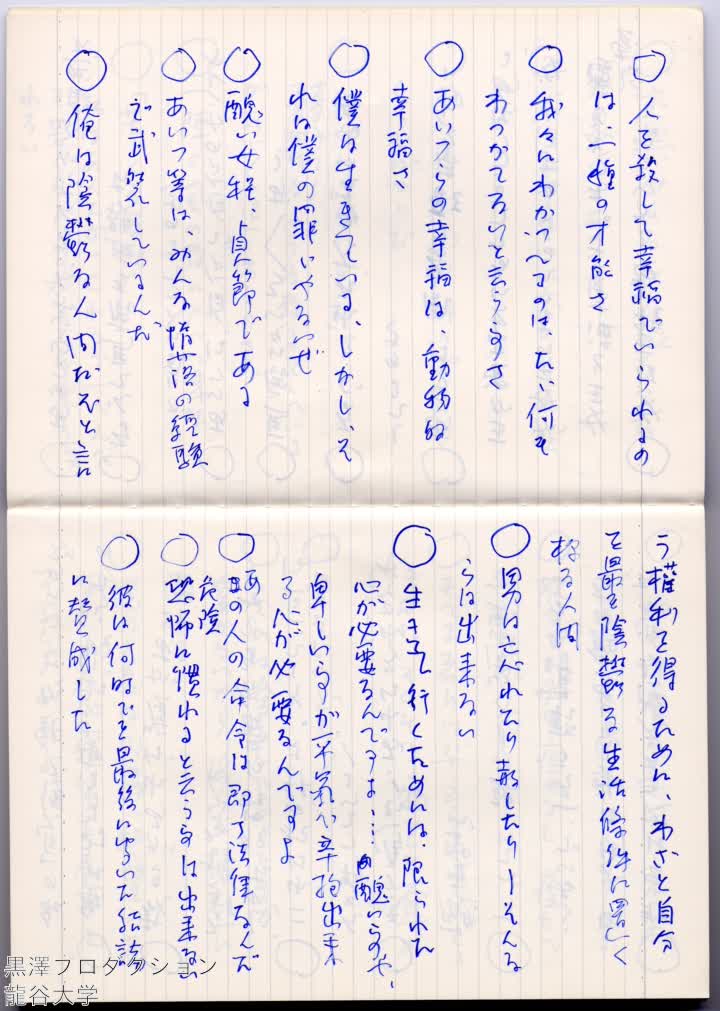 ○人を殺して幸福でいられるの
は、一種の才能さ
○我々にわかつてるのは、たゞ何も
わかつてないと言う事さ
○あいつらの幸福は、動物的
幸福さ
○僕は生きている、しかし、そ
れは僕の罪ぢやないぜ
○醜い女程、貞節である
○あいつ等は、みんな堕落の經驗
で武装しているんだ
○俺は陰鬱な人間だぞと言
う權利を得るために、わざと自分
を最も陰鬱な生活條件に置く
様な人間
○男は忘れたり赦したり―そんな
事は出来ない
○生きて行くためには、限られた
心が必要なんですよ……醜い事や、
卑しい事が平氣で辛抱出来
る心が必要なんですよ
○あの人の命令は即ち法律なんだ
○危険 恐怖に慣れると言う事は出来ない
○彼は何時でも最後に聞いた結論
に賛成した
黒澤プロダクション
龍谷大学